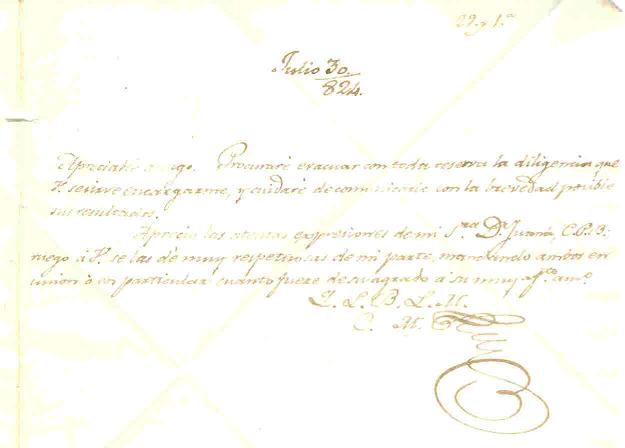 22. y 1.ª
Julio 30/
824.
Apreciable amigo. Procuraré evacuar con toda reserva la diligencia que
V. se sirve encargarme, y cuidaré de comunicarle con la brevedad posible
sus resultados.
Aprecio las atentas expresiones de mi S.ra D.a Juana, C.P.B:
ruego á V. se las dé muy respetuosas de mi parte, mandando ambos en
union ó en particular cuanto fuere de su agrado á su muy af.to am.o
Q. L. B. L. M.
C. M.